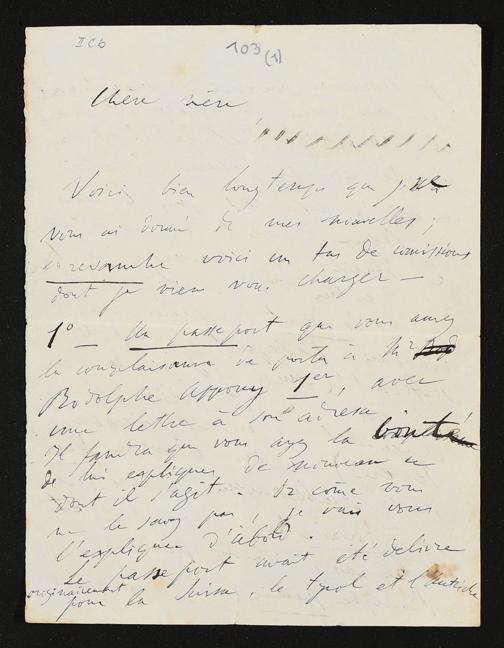 II C b
103 (1)
Chère mère
Voici bien longtemps que je ne
vous ai donné de mes nouvelles ;
en revanche voici un tas de comissions
dont je viens vous charger —
1º — Un passeport que vous aurez
la complaisance de porter à Mr
Rodolphe Appony 1er, avec
une lettre à son adresse
Il faudra que vous ayez la bonté
de lui expliquer de nouveau ce
dont il s'agit. Et come vous
ne le savez pas, je vais vous
l'expliquer d'abord.
Le passeport avait été délivré
originairement
pour la Suisse, le Tyrol et l'Autriche